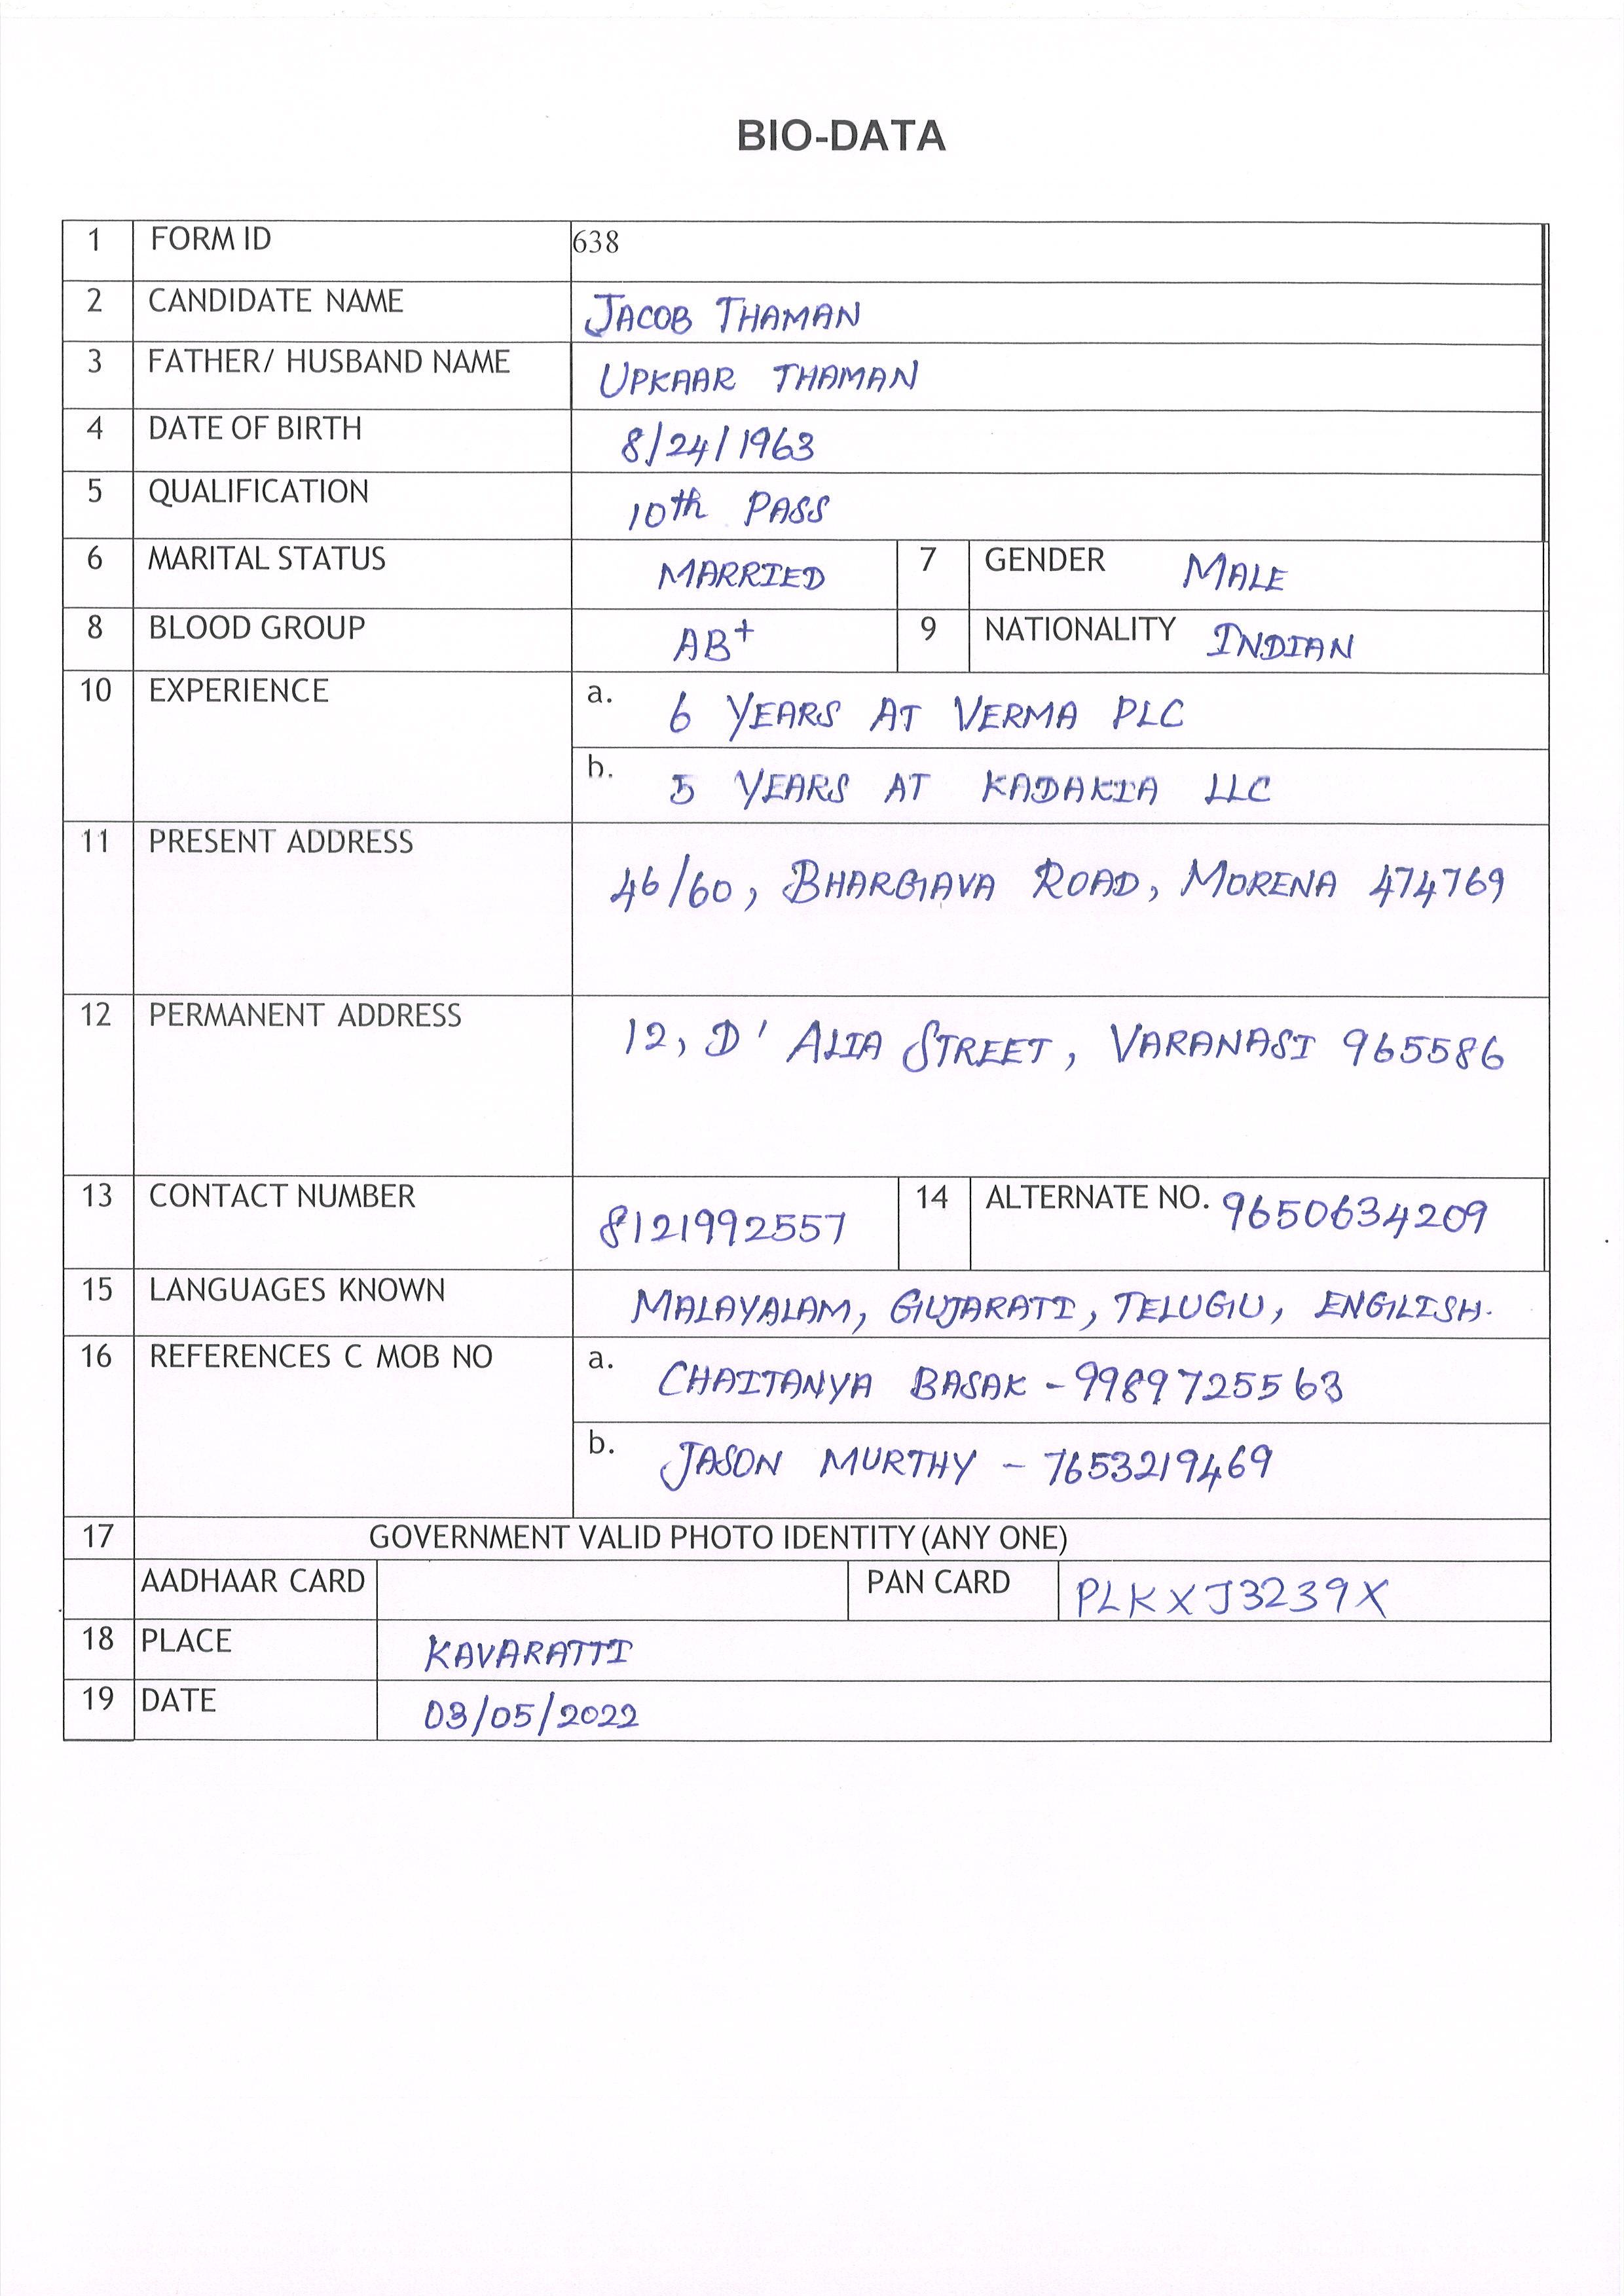 BIO-DATA
1 FORM ID 638
2 CANDIDATE NAME JACOB THAMAN
3 FATHER/ HUSBAND NAME UPKAAR THAMAN
4 DATE OF BIRTH 8/24/1963
5 QUALIFICATION 10th PASS
6 MARITAL STATUS MARRIED 7 GENDER MALE
8 BLOOD GROUP AB+ 9 NATIONALITY INDIAN
10 EXPERIENCE a. 6 YEARS AT VERMA PLC
b. 5 YEARS AT KADAKIA LLC
11 PRESENT ADDRESS 46/60, BHARGAVA ROAD, MORENA 474769
12 PERMANENT ADDRESS 12, D' ALIA STREET, VARANASI 965586
13 CONTACT NUMBER 8121992557 14 ALTERNATE NO. 9650634209
15 LANGUAGES KNOWN MALAYALAM, GUJARATI, TELUGU, ENGLISH.
16 REFERENCES C MOB NO a. CHAITANYA BASAK - 9989725563
b. JASON MURTHY - 7653219469
17 GOVERNMENT VALID PHOTO IDENTITY (ANY ONE)
AADHAAR CARD PAN CARD PLKXJ3239X
18 PLACE KAVARATTI
19 DATE 03/05/2022